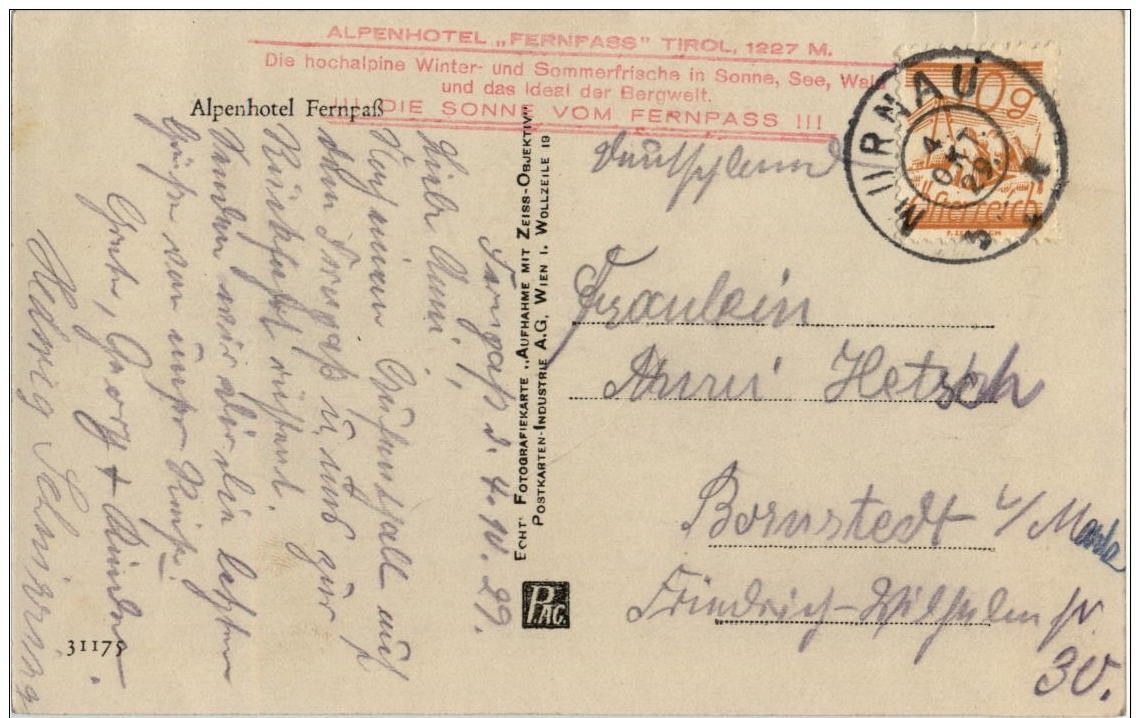 ALPENHOTEL „FERNPASS" TIROL, 1227 M.
Die hochalpine Winter- und Sommerfrische in Sonne, See, Wald
und das Ideal der Bergwelt.
!!! DIE SONNE VOM FERNPASS !!!
Alpenhotel Fernpaß
MURNAU
4 OKT. 29.
3
10g
Österreich
Deutschland
Fräulein
Anni Hetsch
Bornstedt b/Mark
Friedrich-Wilhelm st.
30.
Fernpaß d. 4. 10. 29.
Liebe Anni!,
Nach einem Aufenthalt auf
dem Fernpaß u. nun zur
Rückfahrt rüstend.
Senden wir alle die besten
Grüße von unserer Reise.
Grete, Georg +
Hedwig
ECHT' FOTOGRAFIEKARTE „AUFNAHME MIT ZEISS-OBJEKTIV"
POSTKARTEN-INDUSTRIE A.G, WIEN I. WOLLZEILE 19
P.AG.
31175